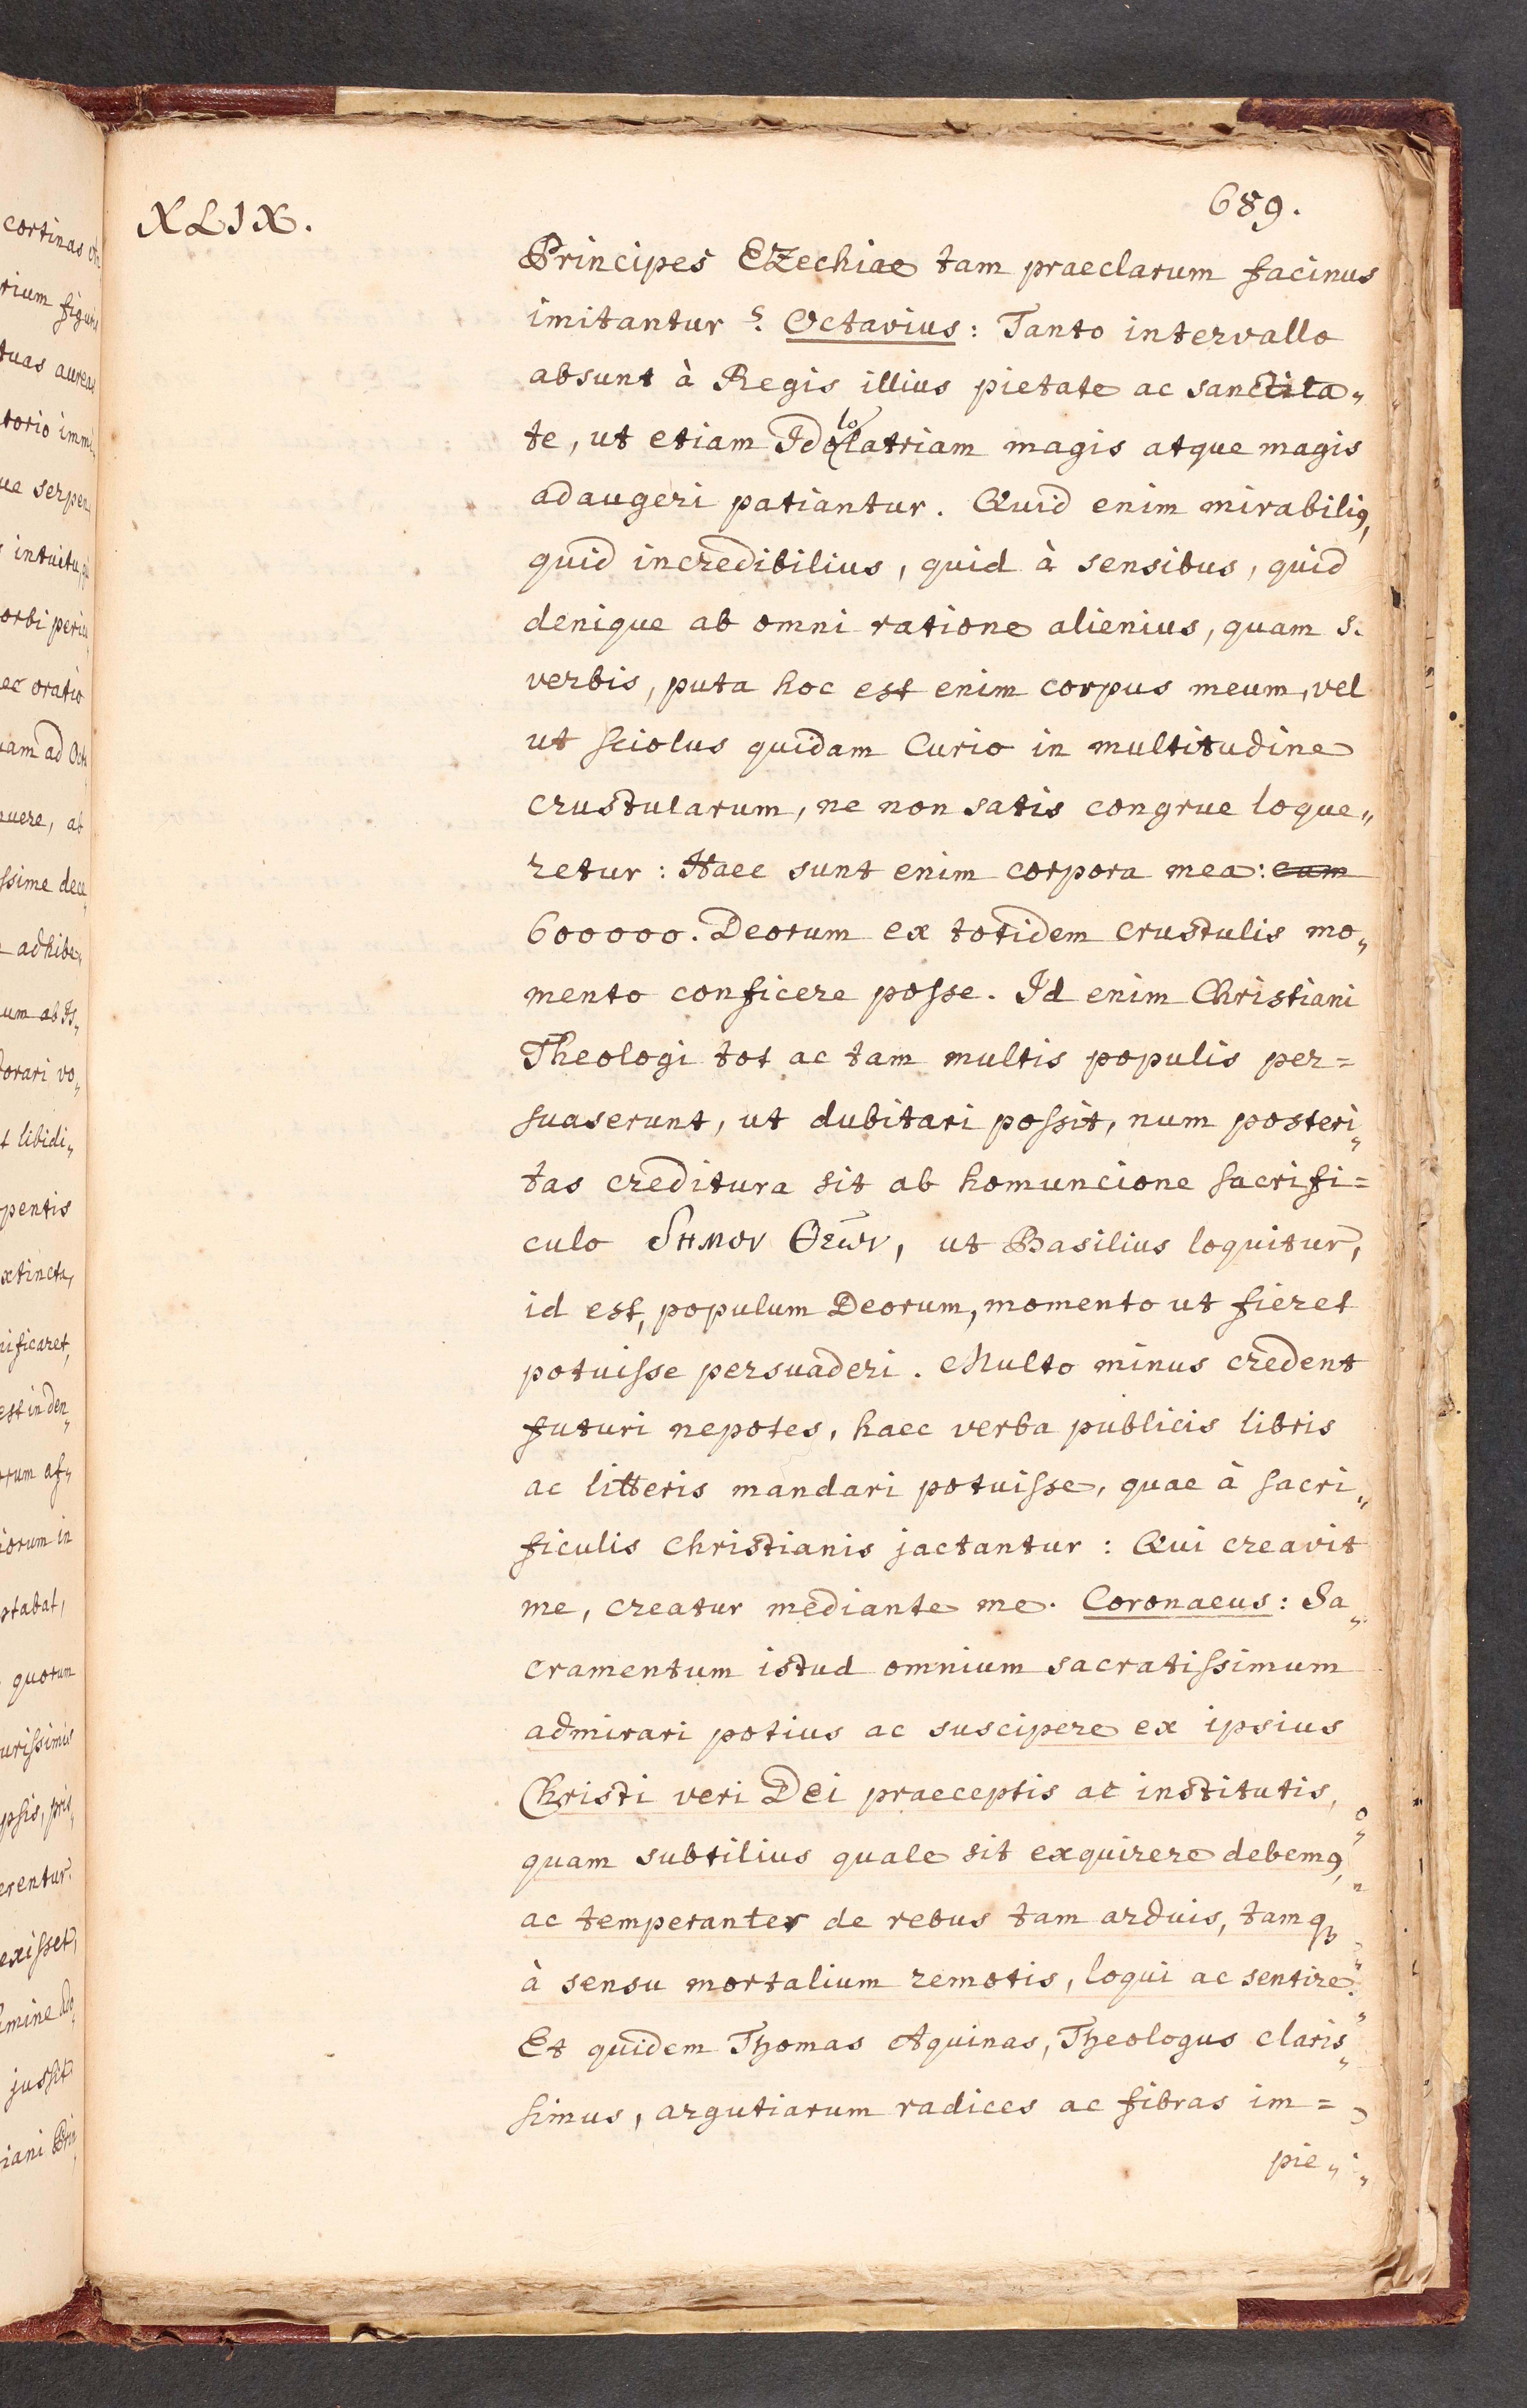 XLIX.
689.
Principes Ezechiae tam praeclarum facinus
imitantur? Octavius: Tanto intervallo
absunt à Regis illius pietate ac sanctita„
te, ut etiam Idololatriam magis atque magis
adaugeri patiantur. Quid enim mirabiliꝰ,
quid incredibilius, quid à sensibus, quid
denique ab omni ratione alienius, quam 5.
verbis, puta hoc est enim corpus meum, vel
ut sciolus quidam Curio in multitudine
crustularum, ne non satis congrue loque„
retur: Haec sunt enim corpora mea: eam
600000. Deorum ex totidem crustulis mo„
mento conficere posse. Id enim Christiani
Theologi tot ac tam multis populis per=
suaserunt, ut dubitari possit, num posteri„
tas creditura sit ab homuncione sacrifi=
culo δημον Θεῶν, ut Basilius loquitur,
id est, populum Deorum, momento ut fieret
potuisse persuaderi. Multo minus credent
futuri nepotes, haec verba publicis libris
ac litteris mandari potuisse, quae à sacri„
ficulis christianis jactantur: Qui creavit
me, creatur mediante me. Coronaeus: Sa„
cramentum istud omnium sacratissimum
admirari potius ac suscipere ex ipsius
Christi veri Dei praeceptis ac institutis,
quam subtilius quale sit exquirere debemꝰ,
ac temperanter de rebus tam arduis, tamqꝫ
à sensu mortalium remotis, loqui ac sentire.
Et quidem Thomas Aquinas, Theologus claris„
simus, argutiarum radices ac fibras im=
pie„